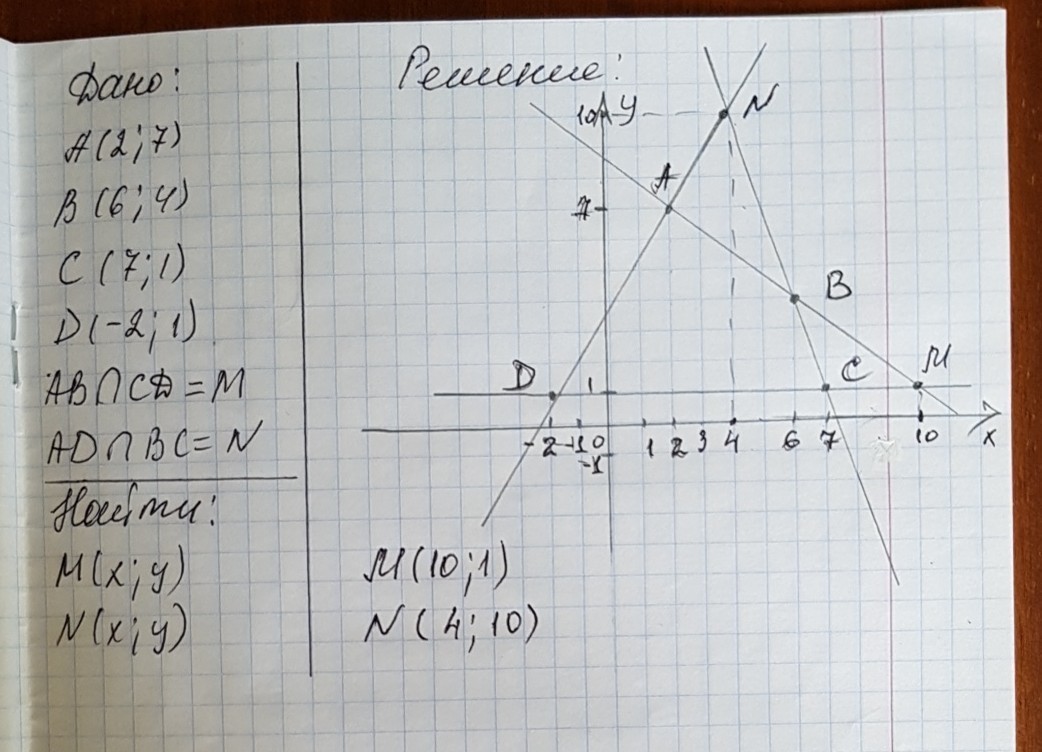 Дано:
A(2;7)
B(6;4)
C(7;1)
D(-2;1)
AB∩CD=M
AD∩BC=N
Найти:
M(x;y)
N(x;y)
Решение:
10 y N
A
7
B
D 1 C M
-2 -1 0 1 2 3 4 6 7 10 x
-1
M(10;1)
N(4;10)